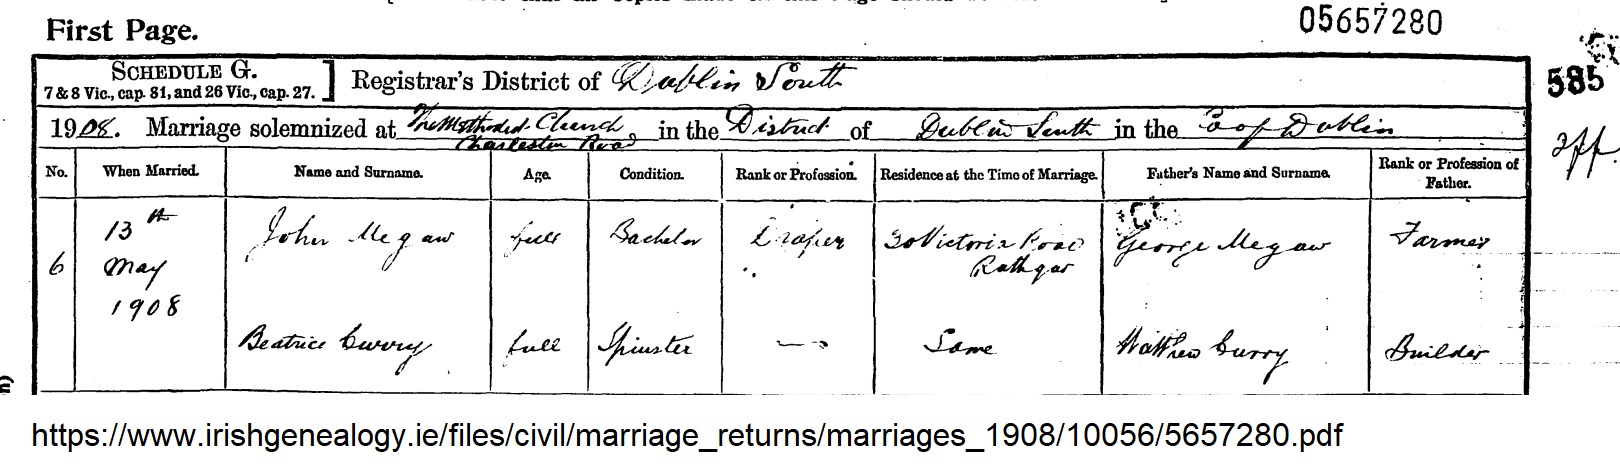 First Page.
05657280
SCHEDULE G.
7 & 8 Vic., cap. 81, and 26 Vic., cap. 27.
Registrar's District of Dublin South
585
1908. Marriage solemnized at The Methodist Church, in the District of Dublin South in the Co of Dublin
Charleston Road
No. When Married. Name and Surname. Age. Condition. Rank or Profession. Residence at the Time of Marriage. Father's Name and Surname. Rank or Profession of Father.
6 13th May 1908 John Megaw full Bachelor Draper 30 Victoria Road Rathgar George Megaw Farmer
Beatrice Curry full Spinster — Same Matthew Curry Builder
https://www.irishgenealogy.ie/files/civil/marriage_returns/marriages_1908/10056/5657280.pdf